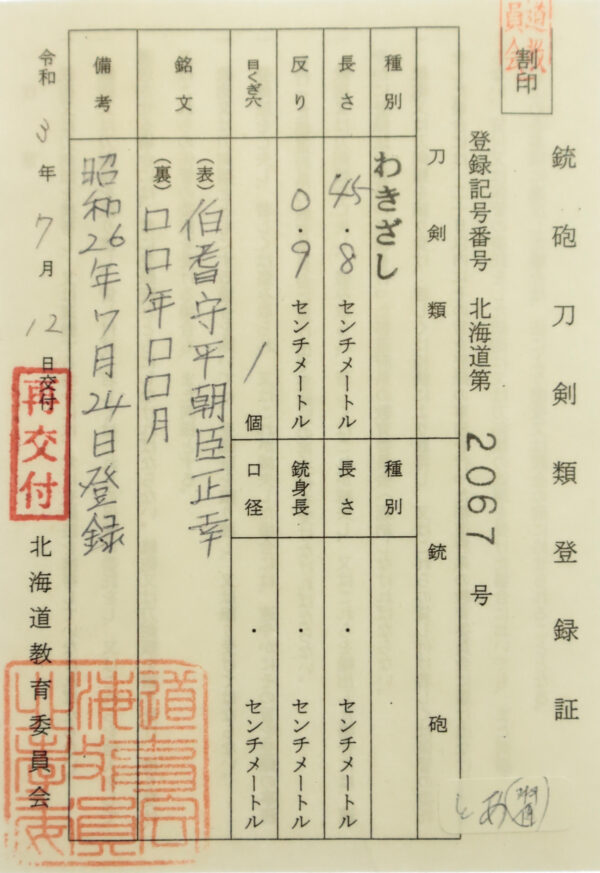 割印
銃砲刀剣類登録証
登録記号番号 北海道第 2067 号
刀剣類
種別 わきざし
長さ 45.8 センチメートル
反り 0.9 センチメートル
目くぎ穴 1 個
銃砲
種別
長さ ・ センチメートル
銃身長 ・ センチメートル
口径 ・ センチメートル
銘文
(表) 伯耆守平朝臣正幸
(裏) 口口年口口月
備考 昭和26年7月24日登録
令和 3 年 7 月 12 日交付
再交付
北海道教育委員会